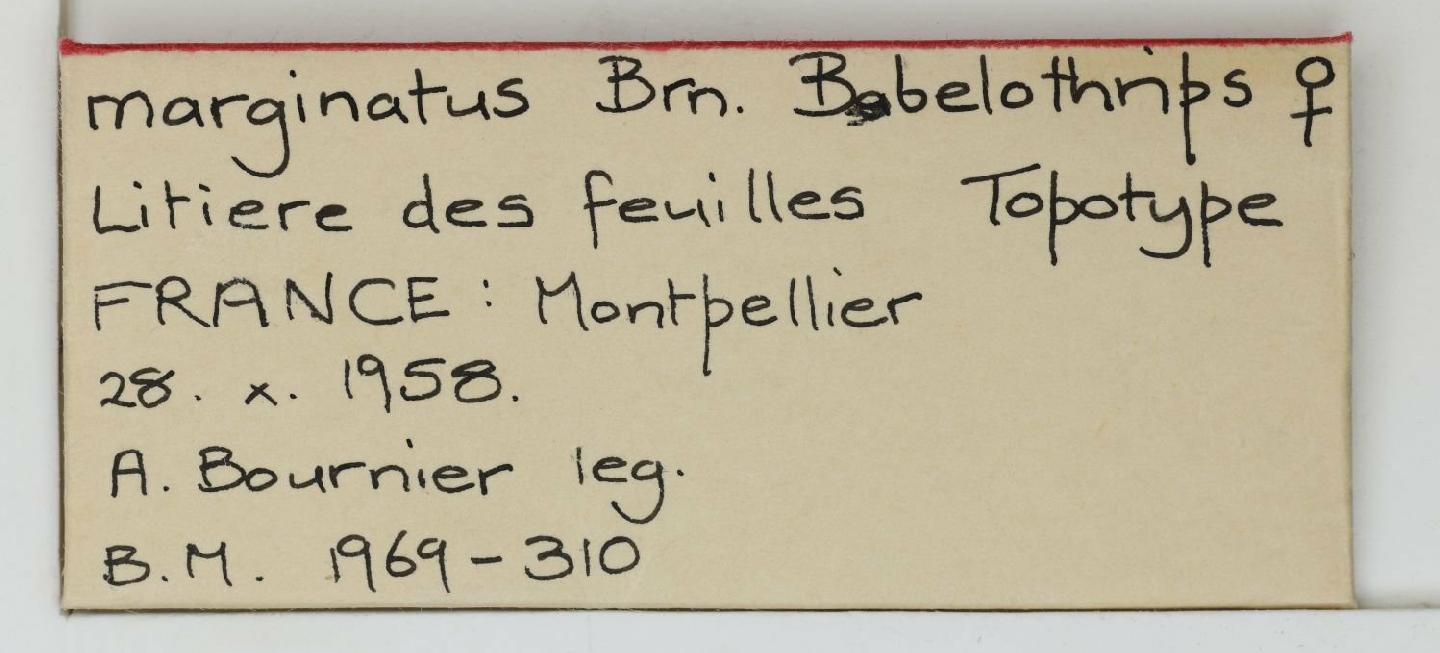 marginatus Brn. Bebelothrips ♀
Litiere des feuilles Topotype
FRANCE : Montpellier
28. x. 1958.
A. Bournier leg.
B.M. 1969-310